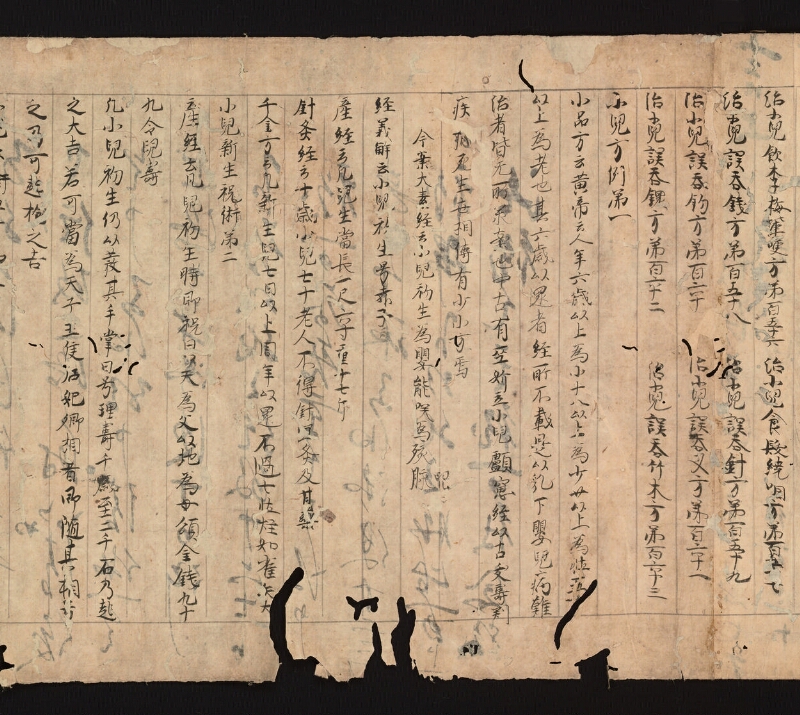 治小兒飲李梅輩哽方第百五十六　治小兒食髮繞咽方第百五十七
治小兒誤吞錢方第百五十八　治小兒誤吞針方第百五十九
治小兒誤吞鉤方第百六十　治小兒誤吞叉方第百六十一
治小兒誤吞鐶方第百六十二　治小兒誤吞竹木方第百六十三
小兒方例第一
小品方云黃帝云人年六歲以上為小十八以上為少廿以上為壯五十
以上為老也其六歲以還者經所不載是以乳下嬰兒病難
治者皆无所承據也中古有巫妨立小兒顱䪿經以占夭壽判
疾病死生世相傳有少小方焉
今案大素經云小兒初生為嬰兒能咲為孩脉
經義解云小兒初生曰赤子
產經云凡兒生當長一尺六寸重十七斤
針灸經云十歲小兒七十老人不得針宜灸及甘藥
千金方云凡新生兒七日以上周年以還不過七壯炷如雀矢大
小兒新生祝術第二
產經云凡兒初生時即祝曰以天為父以地為母頌金錢九十
九令兒壽
凡小兒初生仍以發其手掌曰号理壽千歲至二千石乃起
之大吉若可當為天子王使后妃卿相者即隨其相行
之乃可起之吉